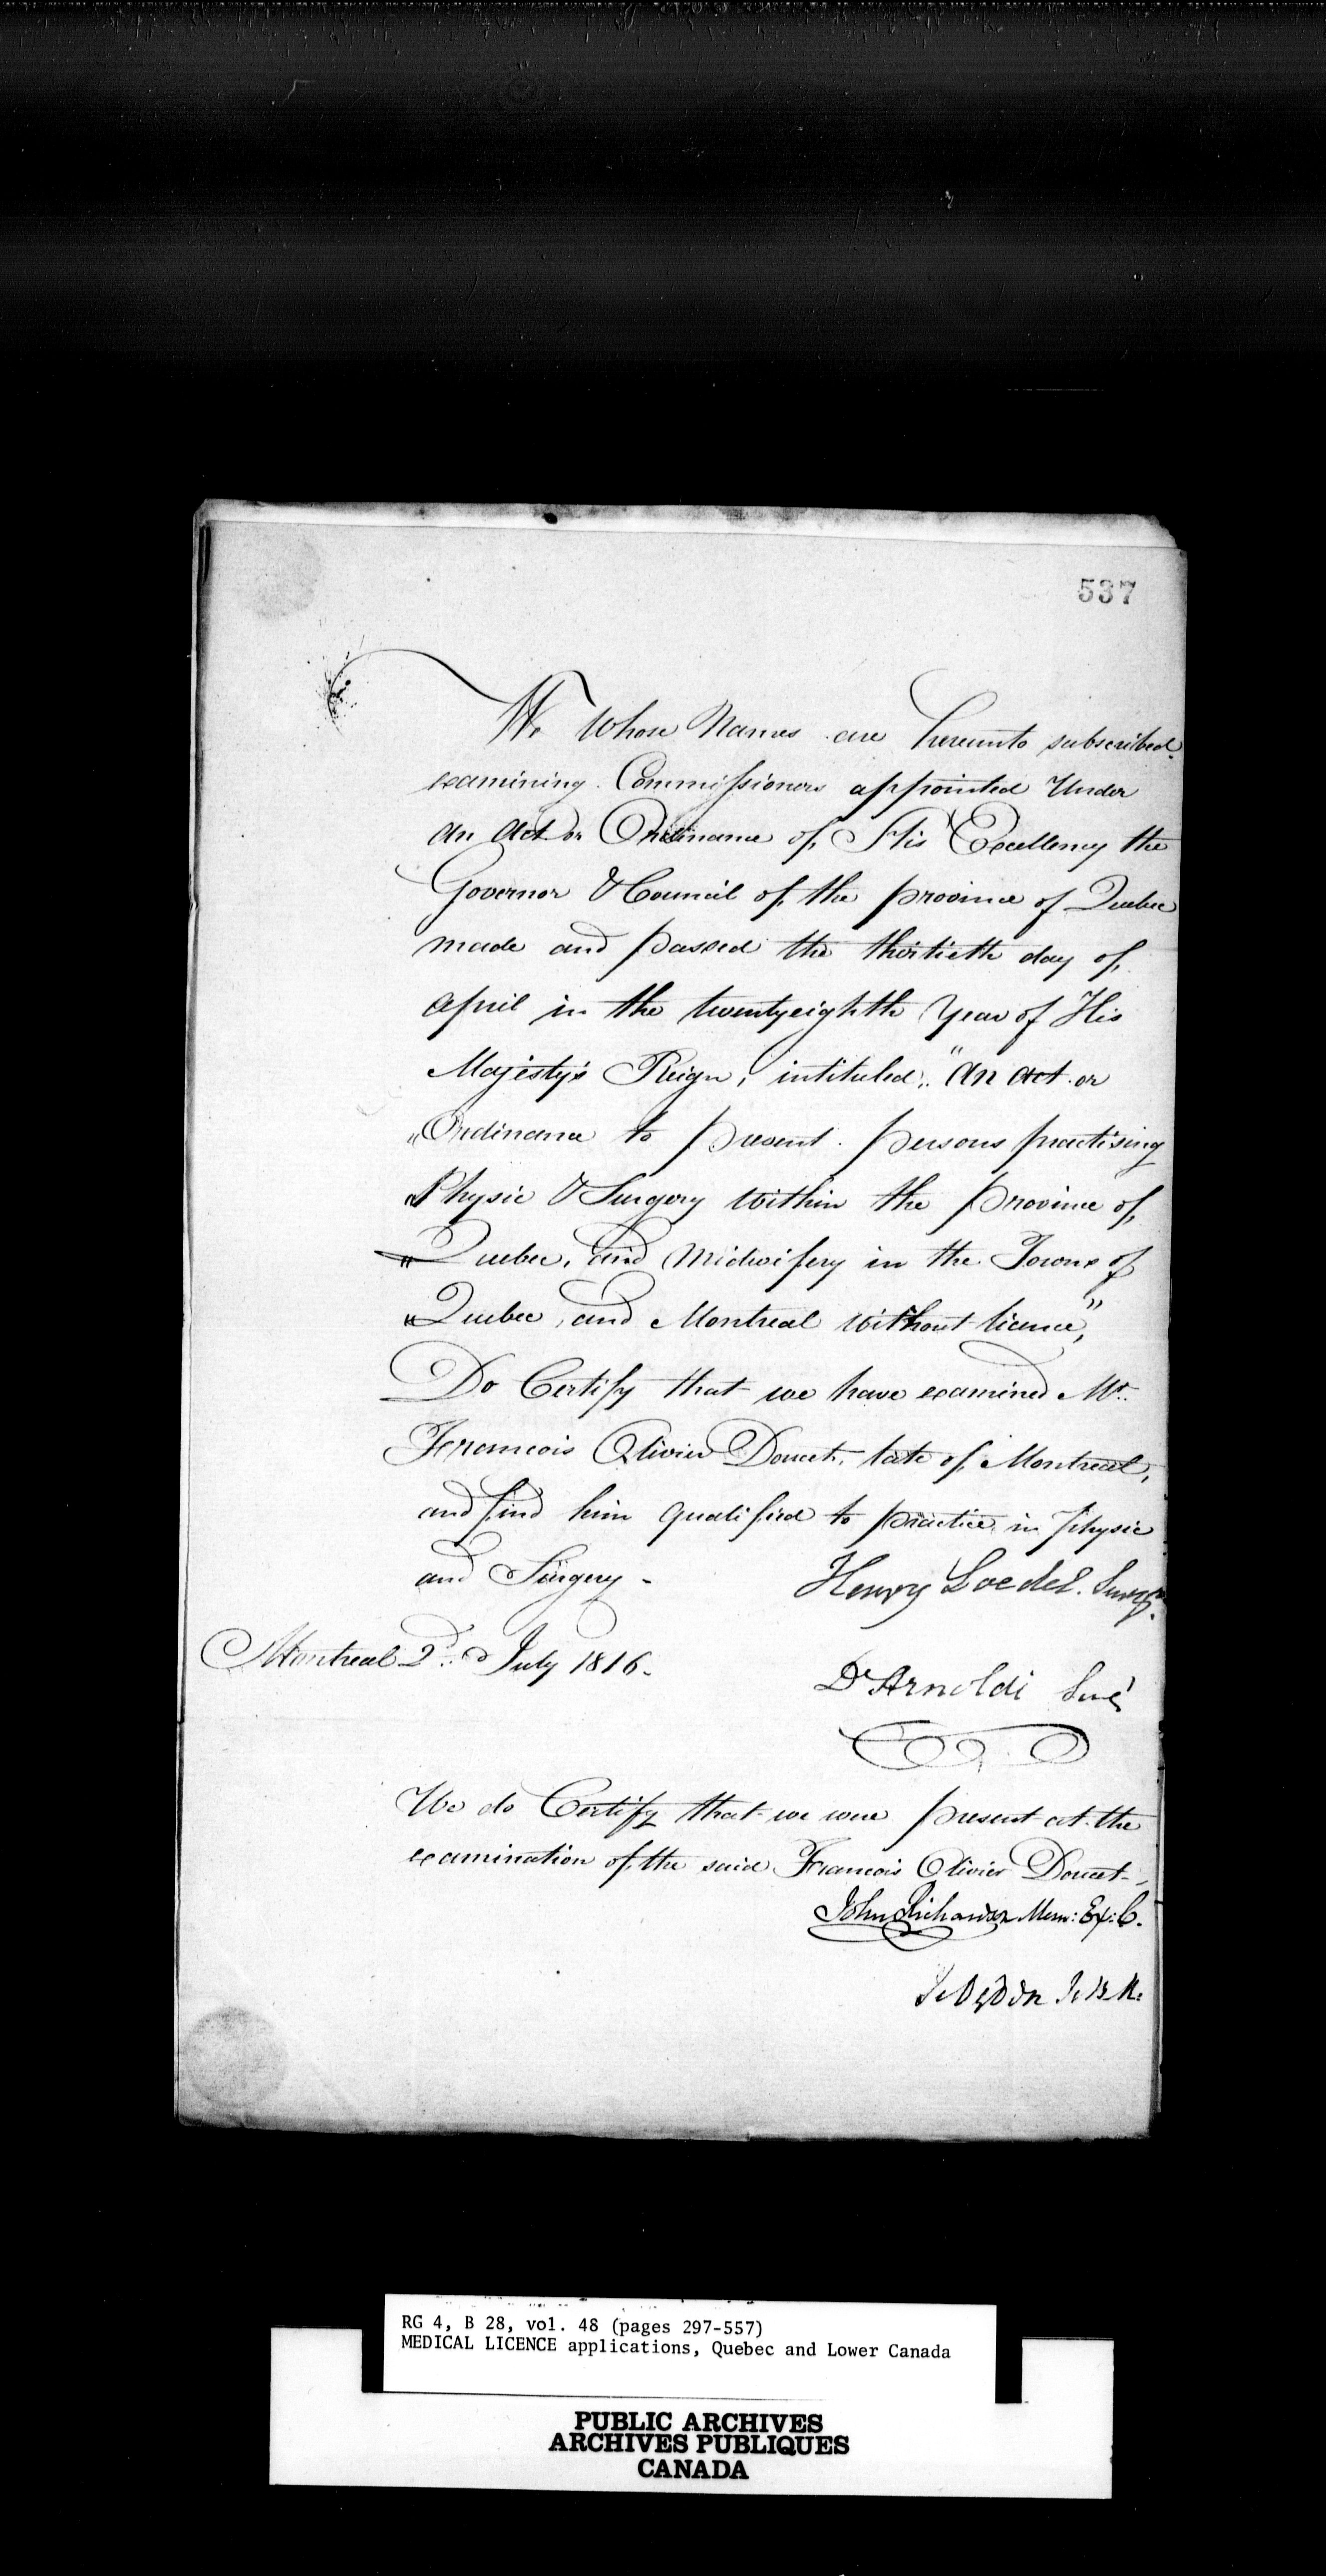 537
We Whose Names are hereunto subscribed
examining Commissioners appointed Under
An Act or Ordinance of His Excellency the
Governor & Council of the province of Quebec
made and passed the thirtieth day of
April in the twentyeighth Year of His
Majesty's Reign, intituled, "An Act or
"Ordinance to prevent persons practising
"Physic & Surgery within the province of
"Quebec, and Midwifery in the Towns of
"Quebec, and Montreal without licence,"
Do Certify that we have examined Mr.
Francois Olivier Doucet, late of Montreal,
and find him qualified to practice in physic
and Surgery -
Henry Loedel. Surgn.
Montreal 2d. July 1816.
Dr Arnoldi Surg
We do Certify that we were present at the
examination of the said Francois Olivier Doucet
John Richardson Mem: Ex: C.
J. B. R.
RG 4, B 28, vol. 48 (pages 297-557)
MEDICAL LICENCE applications, Quebec and Lower Canada
PUBLIC ARCHIVES
ARCHIVES PUBLIQUES
CANADA